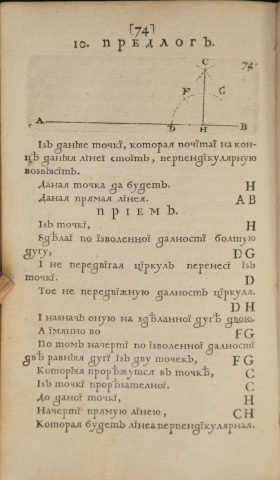 [74]
10. ПРЕДЛОГЪ.
C
74
F G
A D H B
Їзъ даныѥ точкї, которая почїтаї на кон-
цѣ даныя лїнеї стоїтъ, перпендїкулярную
возвысїть.
Даная точка да будетъ. H
Даная прямая лїнея. A B
ПРІЕМЪ.
Їзъ точкї, H
Здѣлаї по їзволенної далностї болшую
дугу, D G
І не передвїгая цїркуль перенесї їзъ
точкї. D
Тое не передвїжную далность цїркуля.
D H
І назначь оную на здѣланної дугѣ двою.
А їмянно во F G
По томъ начертї по їзволенної далностї
двѣ равныя дугї їзъ дву точекъ, F G
Которыя прорѣжутся въ точкѣ, C
Їзъ точкї прорѣзателної. C
До даної точкї, H
Начертї прямую лїнею, C H
Которая будетъ лїнеа перпендїкулярная.